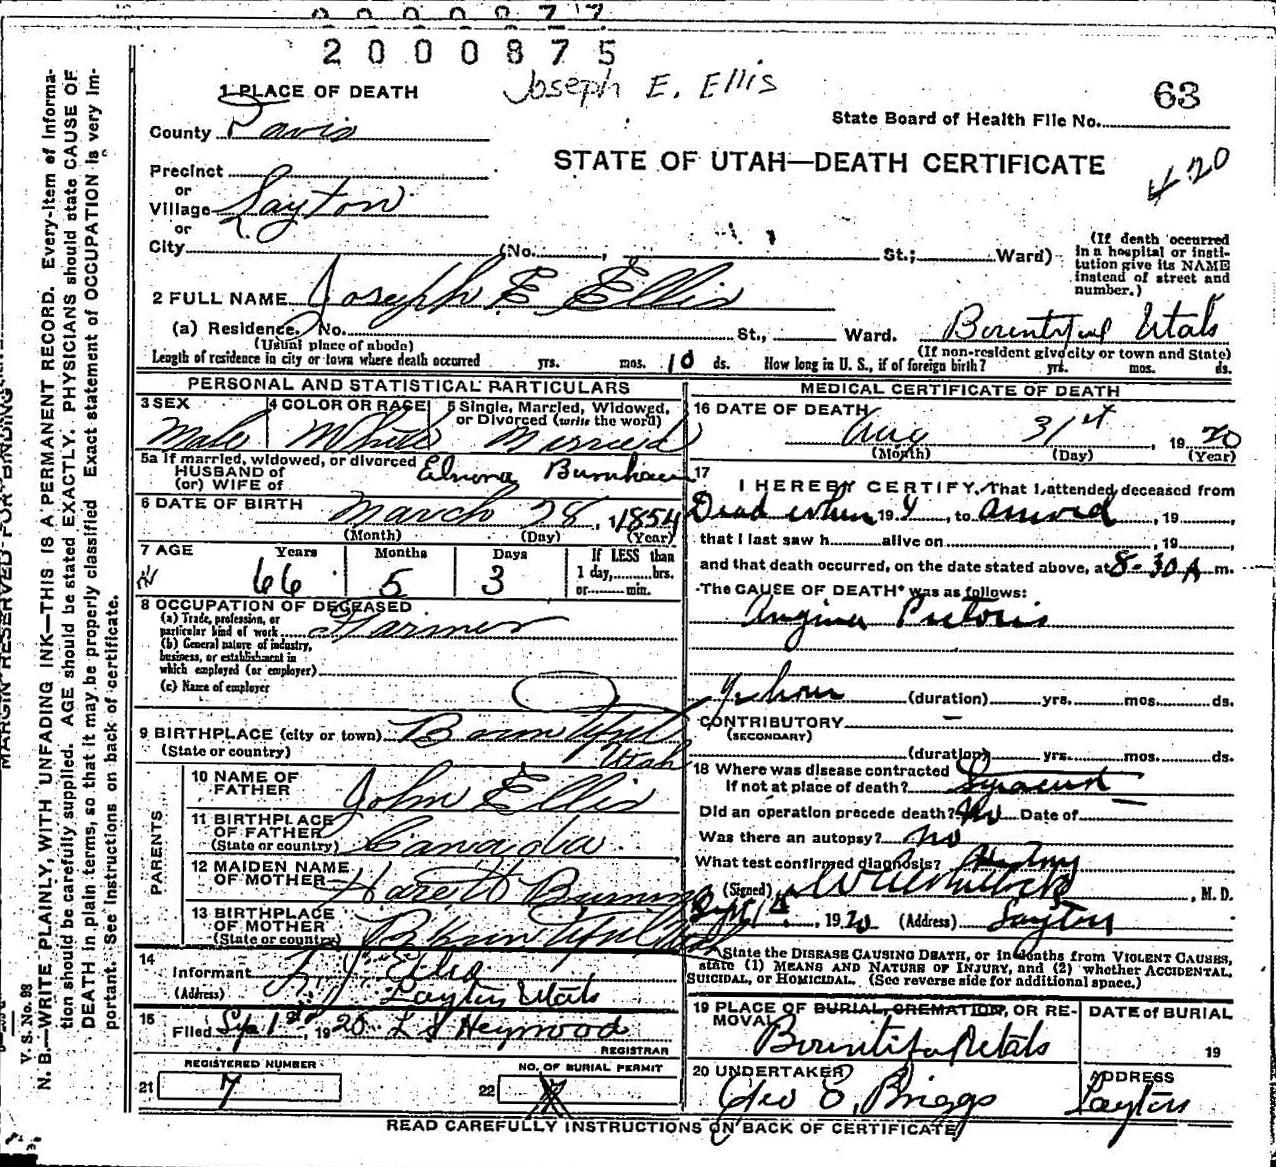 2000877
2000875
Joseph E. Ellis
63
1 PLACE OF DEATH
State Board of Health File No.
County Davis
STATE OF UTAH—DEATH CERTIFICATE
420
Precinct
or
Village Layton
or
City (No. , St.; Ward)
(If death occurred in a hospital or institution give its NAME instead of street and number.)
2 FULL NAME Joseph E Ellis
(a) Residence. No. St., Ward. Bountiful Utah
(Usual place of abode) (If non-resident give city or town and State)
Length of residence in city or town where death occurred yrs. mos. 10 ds. How long in U. S., if of foreign birth? yrs. mos. ds.
PERSONAL AND STATISTICAL PARTICULARS
3 SEX 4 COLOR OR RACE 5 Single, Married, Widowed, or Divorced (write the word)
Male White Married
5a If married, widowed, or divorced
HUSBAND of
(or) WIFE of
Elnora Burnham
6 DATE OF BIRTH March 28, 1854
(Month) (Day) (Year)
7 AGE Years Months Days If LESS than
1 day, hrs.
or min.
66 5 3
8 OCCUPATION OF DECEASED
(a) Trade, profession, or
particular kind of work Farmer
(b) General nature of industry,
business, or establishment in
which employed (or employer)
(c) Name of employer
9 BIRTHPLACE (city or town) Bountiful
(State or country) Utah
PARENTS
10 NAME OF FATHER John Ellis
11 BIRTHPLACE OF FATHER
(State or country) Canada
12 MAIDEN NAME OF MOTHER
13 BIRTHPLACE OF MOTHER
(State or country)
14
Informant
(Address) Layton Utah
15
Filed Sep 1st, 1920 L S Heywood
REGISTRAR
REGISTERED NUMBER NO. OF BURIAL PERMIT
21 7 22
MEDICAL CERTIFICATE OF DEATH
16 DATE OF DEATH
Aug 31st, 1920
(Month) (Day) (Year)
17
I HEREBY CERTIFY, That I attended deceased from
Dead when 19 , to arrived, 19 ,
that I last saw h alive on , 19 ,
and that death occurred, on the date stated above, at 8-30 A m.
The CAUSE OF DEATH* was as follows:
Angina Pectoris
½ hour (duration) yrs. mos. ds.
CONTRIBUTORY —
(SECONDARY)
(duration) yrs. mos. ds.
18 Where was disease contracted
If not at place of death?
Did an operation precede death? No Date of
Was there an autopsy? no
What test confirmed diagnosis? History
(Signed) , M. D.
Sept 1st, 1920 (Address) Layton
*State the DISEASE CAUSING DEATH, or in deaths from VIOLENT CAUSES,
state (1) MEANS AND NATURE OF INJURY, and (2) whether ACCIDENTAL,
SUICIDAL, or HOMICIDAL. (See reverse side for additional space.)
19 PLACE OF BURIAL, CREMATION, OR REMOVAL DATE of BURIAL
Bountiful Utah 19
20 UNDERTAKER ADDRESS
Geo E. Briggs Layton
READ CAREFULLY INSTRUCTIONS ON BACK OF CERTIFICATE
MARGIN RESERVED FOR BINDING
V. S. No. 98
N. B.—WRITE PLAINLY, WITH UNFADING INK—THIS IS A PERMANENT RECORD. Every item of information should be carefully supplied. AGE should be stated EXACTLY. PHYSICIANS should state CAUSE OF DEATH in plain terms, so that it may be properly classified. Exact statement of OCCUPATION is very important. See instructions on back of certificate.